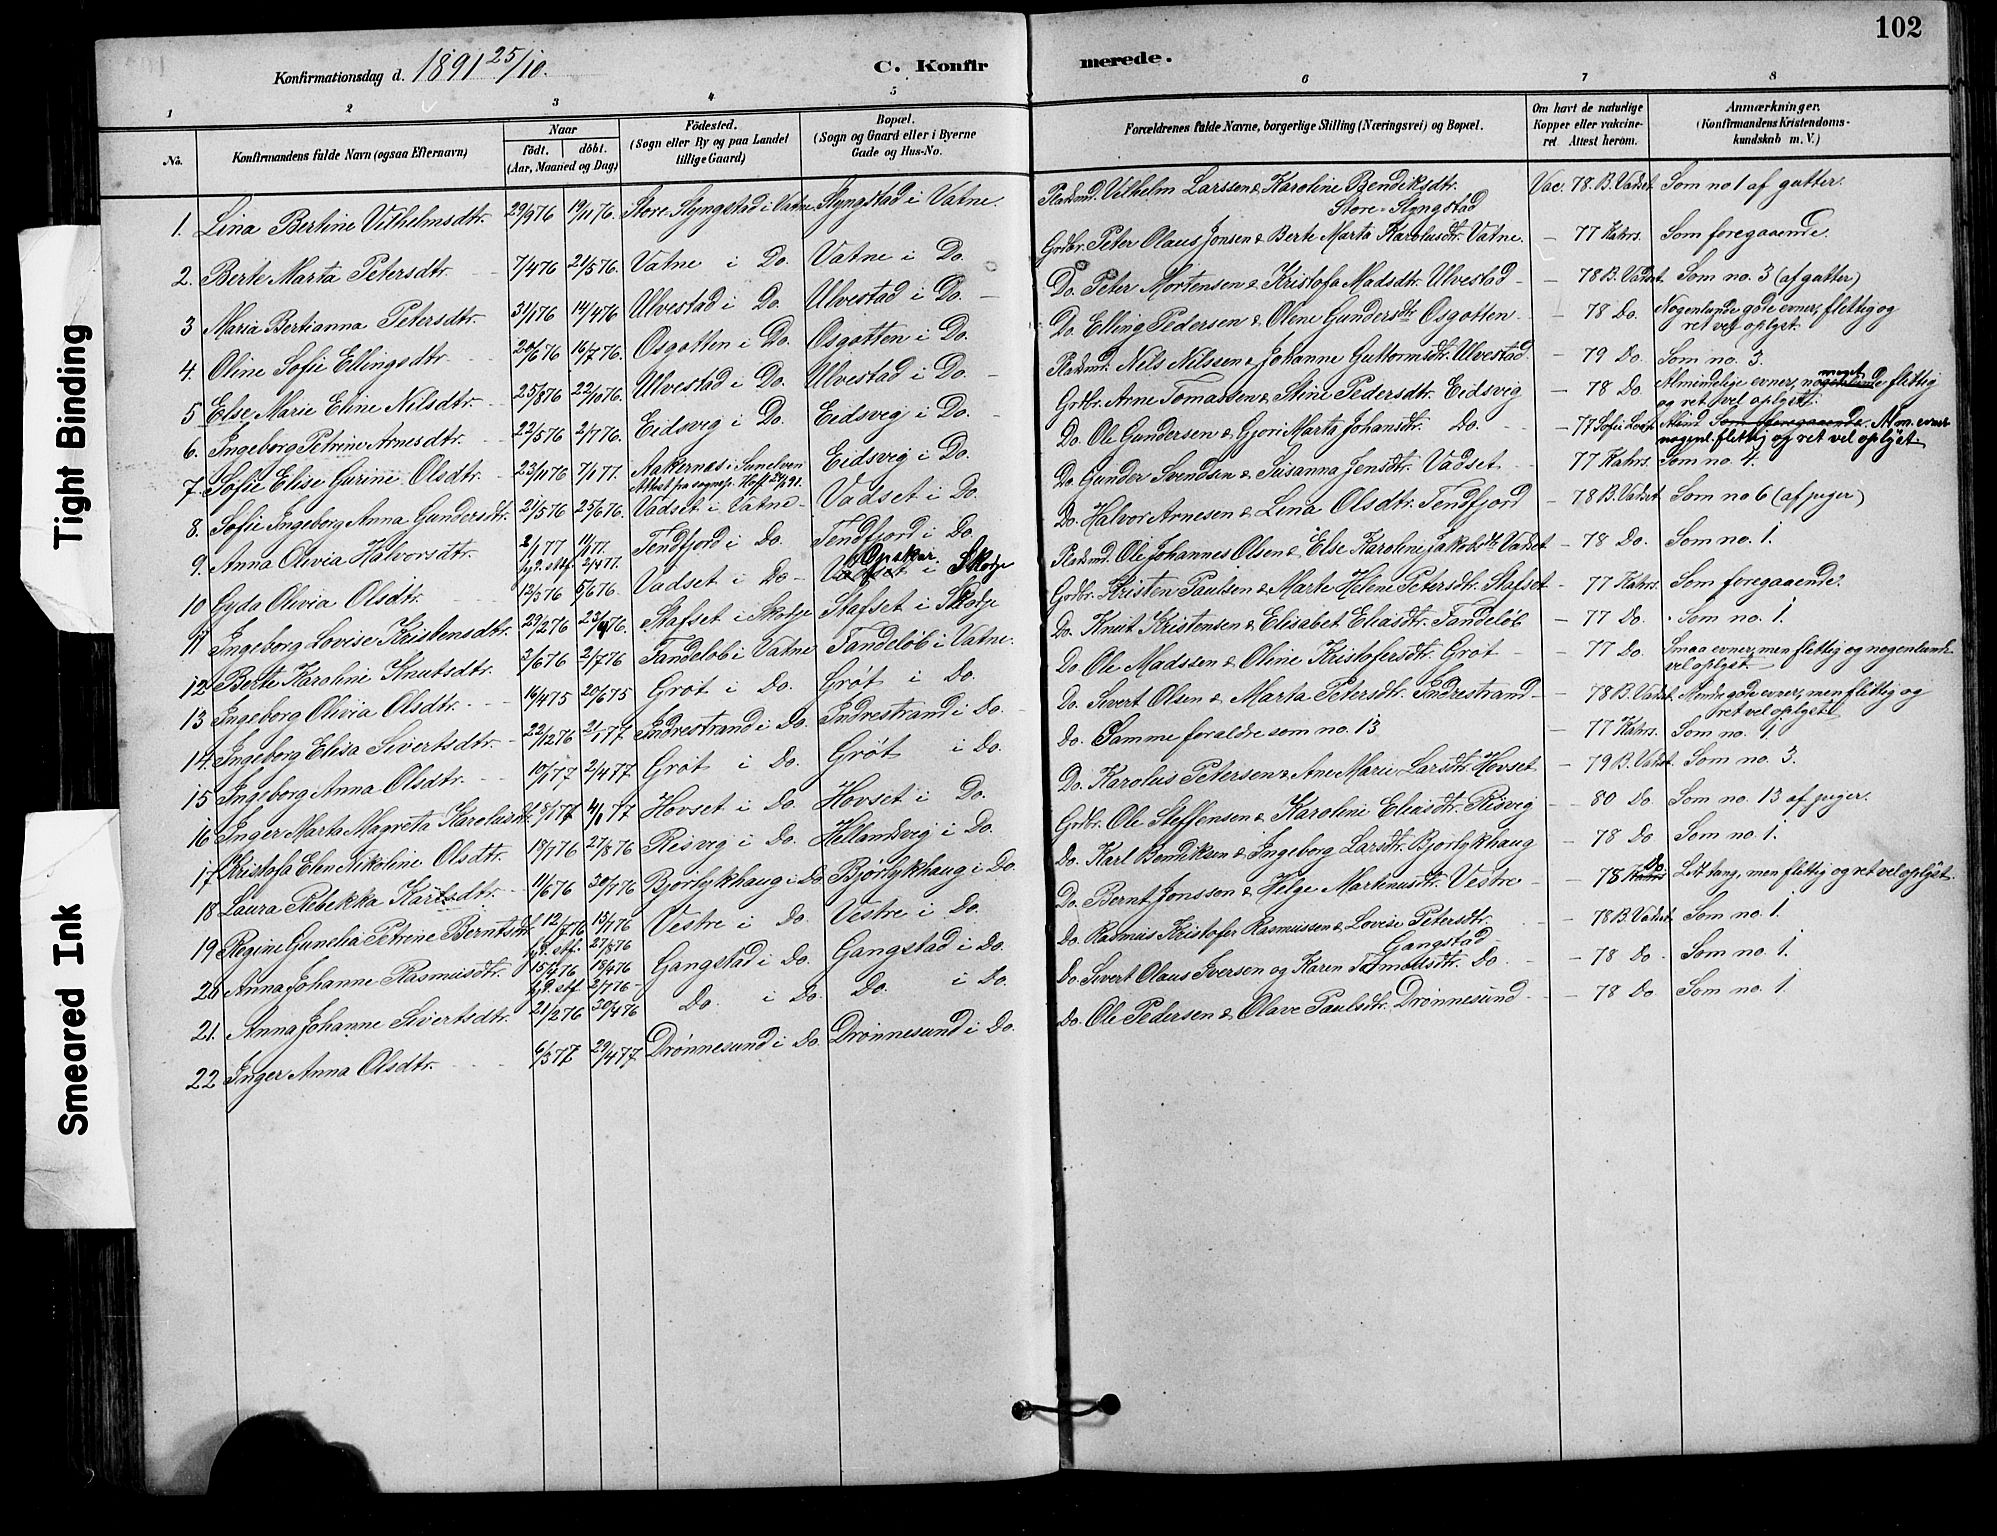 102
Konfirmationsdag d. 1891 25/10.
C. Konfirmerede.
1 2 3 4 5 6 7 8
No.
Konfirmandens fulde Navn (ogsaa Efternavn)
Naar
födt. döbt.
(Aar, Maaned og Dag)
Födested.
(Sogn eller By og paa Landet
tillige Gaard)
Bopæl.
(Sogn og Gaard eller i Byerne
Gade og Hus-No.
Forældrenes fulde Navne, borgerlige Stilling (Næringsvei) og Bopæl.
Om havt de naturlige
Kopper eller vakcine-
ret Attest herom.
Anmærkninger.
(Konfirmandens Kristendoms-
kundskab m. V.)
1. Lina Bertine Vilhelmsdtr. 29/9 76 19/11 76. Store Slyngstad i Vatne Slyngstad i Vatne. Pladsmd. Vilhelm Larssen & Karoline Bendiksdtr. Store-Slyngstad Vac. 78. B. Vadset. Som no 1 af gutter.
2. Berte Marta Petersdtr. 7/4 76 21/5 76. Vatne i Do. Vatne i Do. Grdbr. Peter Olaus Jonsen & Berte Marta Karolusdtr. Vatne. – 77 Kahrs. Som foregaaende.
3 Maria Bertianna Petersdtr. 31/1 76 14/4 76 Ulvestad i Do. Ulvestad i Do. Do. Peter Mortensen & Kristofa Madsdtr. Ulvestad – 78 B. Vadset. Som no. 3 (af gutter)
4. Oline Sofie Ellingsdtr. 20/6 76 16/7 76. Osgotten i Do. Osgotten i Do. Do. Elling Pedersen & Olene Gundersdtr. Osgotten – 78 Do. Nogenlunde gode evner, flittig og ret vel oplyst.
5 Else Marie Eline Nilsdtr. 25/8 76 22/10 76. Ulvestad i Do. Ulvestad i Do. Pladsmd. Nels Nilssen & Johanne Guttormsdtr. Ulvestad – 79 Do. Som no. 3.
6. Ingeborg Petrine Arnesdtr. 22/5 76 2/7 76. Eidsvig i Do. Eidsvig i Do. Grdbr. Arne Tomassen & Stine Pedersdtr. Eidsvig – 78 Do. Almindelige evner, nogenlunde meget flittig og ret vel oplyst.
7 Sofie Elise Gurine Olsdtr. 23/11 76 7/1 77. Aakernæs i Sunelven Eidsvig i Do. Do. Ole Gundersen & Gjori Marta Johansdtr. Do. – 77 Som foregaaende. Alm. evner nogenl. flittig og ret vel oplyst
8. Sofie Ingeborg Anna Gundersdtr. 21/5 76 25/6 76. Vadset i Vatne Vadset i Do. Do. Gunder Svendsen & Susanna Jensdtr. Vadset – 77 Kahrs. Som no. 4.
9. Anna Olivia Halvorsdtr. Tendfjord i Do. Tendfjord i Do. Do. Halvor Arnesen & Lina Olsdtr. Tendfjord – 78 B. Vadset. Som no 6 (af piger)
10 Gyda Olivia Olsdtr. 12/5 76 5/6 76. Vadset i Do. Vadset i Skodje Pladsmd. Ole Johannes Olsen & Else Karoline Jakobsdtr. Vadset – 78 Do. Som no. 1.
11 Ingeborg Lovise Kristensdtr. 29/2 76 23/4 76. Stafset i Skodje Stafset i Skodje Grdbr. Kristen Paulsen & Marte Helene Petersdtr. Stafset – 77 Kahrs. Som foregaaende.
12. Berte Karoline Knutsdtr. 3/6 76 2/7 76 Tandelöb i Vatne Tandelöb i Vatne. Do. Knut Kristensen & Elisabet Eliasdtr. Tandelöb – 77 Do. Som no. 1.
13 Ingeborg Olivia Olsdtr. 16/4 75 20/6 75 Gröt i Do. Gröt i Do. Do Ole Madssen & Oline Kristofersdtr. Gröt – 77 Do. Smaa evner, men flittig og nogenlunde vel oplyst
14. Ingeborg Elisa Sivertsdtr. 22/12 76 2/1 77 Indrestrand i Do. Indrestrand i Do. Do. Sivert Olsen & Marta Petersdtr. Indrestrand – 78 B. Vadset. Mindre gode evner, men flittig og ret vel oplyst
15 Ingeborg Anna Olsdtr. 10/1 77 2/4 77 Gröt i Do. Gröt i Do. Do. Samme foraldre som no. 13 – 77 Kahrs. Som no. 1
16 Inger Marta Magreta Karolusdtr. Hovset i Do. Hovset i Do. Do. Karolus Petersen & Ane Marie Larsdtr. Hovset – 79 B. Vadset. Som no. 3.
17 Kristofa Elen Nikoline Olsdtr. 18/7 76 27/8 76 Risvig i Do. Hellandsvig i Do. Grdbr. Ole Steffensen & Karoline Eliasdtr. Risvig – 80 Do. Som no. 13 af piger.
18 Laura Rebekka Karlsdtr. 11/6 76 30/7 76 Bjórlykhaug i Do Bjórlykhaug i Do. Do. Karl Bendiksen & Ingeborg Larsdtr. Bjorlykhaug – 78 Do Som no. 1.
19 Regine Gunelia Petrine Berntsdtr. Vestre i Do. Vestre i Do. Do. Bernt Jonsson & Helge Martinusdtr. Vestre – 78 Kahrs Do. Lidt tung, men flittig og ret vel oplyst.
20 Anna Johanne Rasmusdtr. Gangstad i Do. Gangstad i Do. Do. Rasmus Kristofer Rasmussen & Lovise Petersdtr. Gangstad – 78 B. Vadset. Som no. 1.
21. Anna Johanne Sivertsdtr. 21/2 76 30/4 76 Do. i Do. Do. i Do. Do. Sivert Olaus Iversen og Karen Do. – 78 Do. Som no. 1.
22 Inger Anna Olsdtr. 6/3 77 29/4 77 Drönnesund i Do. Drönnesund i Do. Do. Ole Pedersen & Olave Paulsdtr. Drönnesund – 78 Do. Som no. 1.
Tight Binding
Smeared Ink